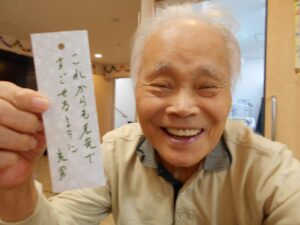 これからも元気で
すごせるように